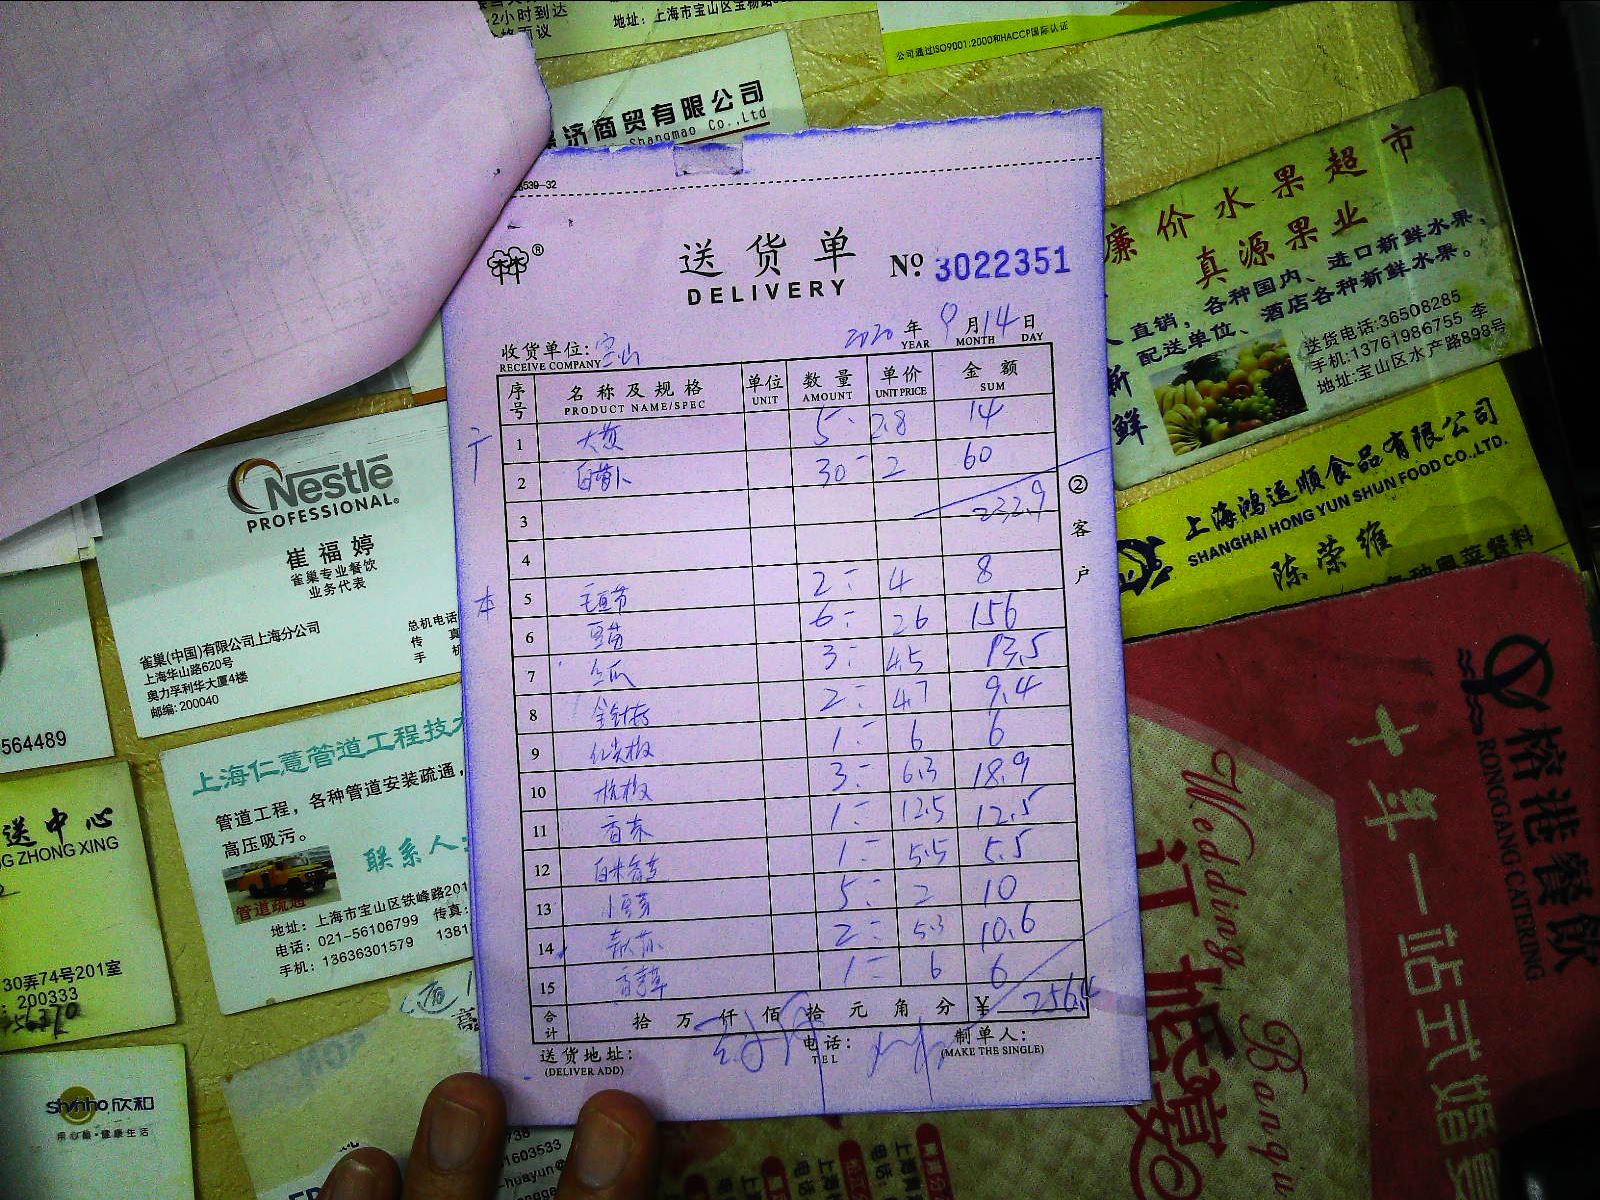 2小时到达
地址：上海市宝山区宝杨路
公司通过ISO9001:2000和HACCP国际认证
济商贸有限公司
Shangmao Co.,Ltd
539-32
送货单
DELIVERY
№ 3022351
收货单位：宝山
RECEIVE COMPANY
2020 年 9 月 14 日
YEAR MONTH DAY
序号 名称及规格 单位 数量 单价 金额
PRODUCT NAME/SPEC UNIT AMOUNT UNIT PRICE SUM
1 5 2.8 14
2 白萝卜 30 2 60
3 232.9
4
本
5 毛豆节 2 4 8
6 豆苗 6 26 156
7 丝瓜 3 4.5 13.5
8 金针菇 2 4.7 9.4
9 红尖椒 1 6 6
10 杭椒 3 6.3 18.9
11 香菜 1 12.5 12.5
12 1 5.5 5.5
13 小豆芽 5 2 10
14 2 5.3 10.6
15 1 6 6
合计 拾 万 仟 佰 拾 元 角 分 ￥ 256.4
送货地址：
(DELIVER ADD)
电话：
TEL
制单人：
(MAKE THE SINGLE)
②客户
Nestlé
PROFESSIONAL.
崔福婷
雀巢专业餐饮
业务代表
雀巢(中国)有限公司上海分公司
上海华山路620号
奥力孚利华大厦4楼
邮编: 200040
总机电话
传 真
手 机
564489
上海仁薏管道工程技
管道工程，各种管道安装疏通，
高压吸污。
联系人：
管道疏通
地址：上海市宝山区铁峰路201
电话：021-56106799 传真：
手机：13636301579 1381
送中心
G ZHONG XING
30弄74号201室
200333
shinho 欣和
用心酿·健康生活
廉价水果超市
真源果业
直销，各种国内、进口新鲜水果，
配送单位、酒店各种新鲜水果。
新鲜
送货电话:36508285
手机:13761986755 李
地址:宝山区水产路898号
上海鸿运顺食品有限公司
SHANGHAI HONG YUN SHUN FOOD CO.,LTD.
陈荣维
各种粤菜餐料
榕港餐饮
RONGGANG CATERING
十年一站式婚宴
Wedding Banqu
订好宴
1603533
huayun@